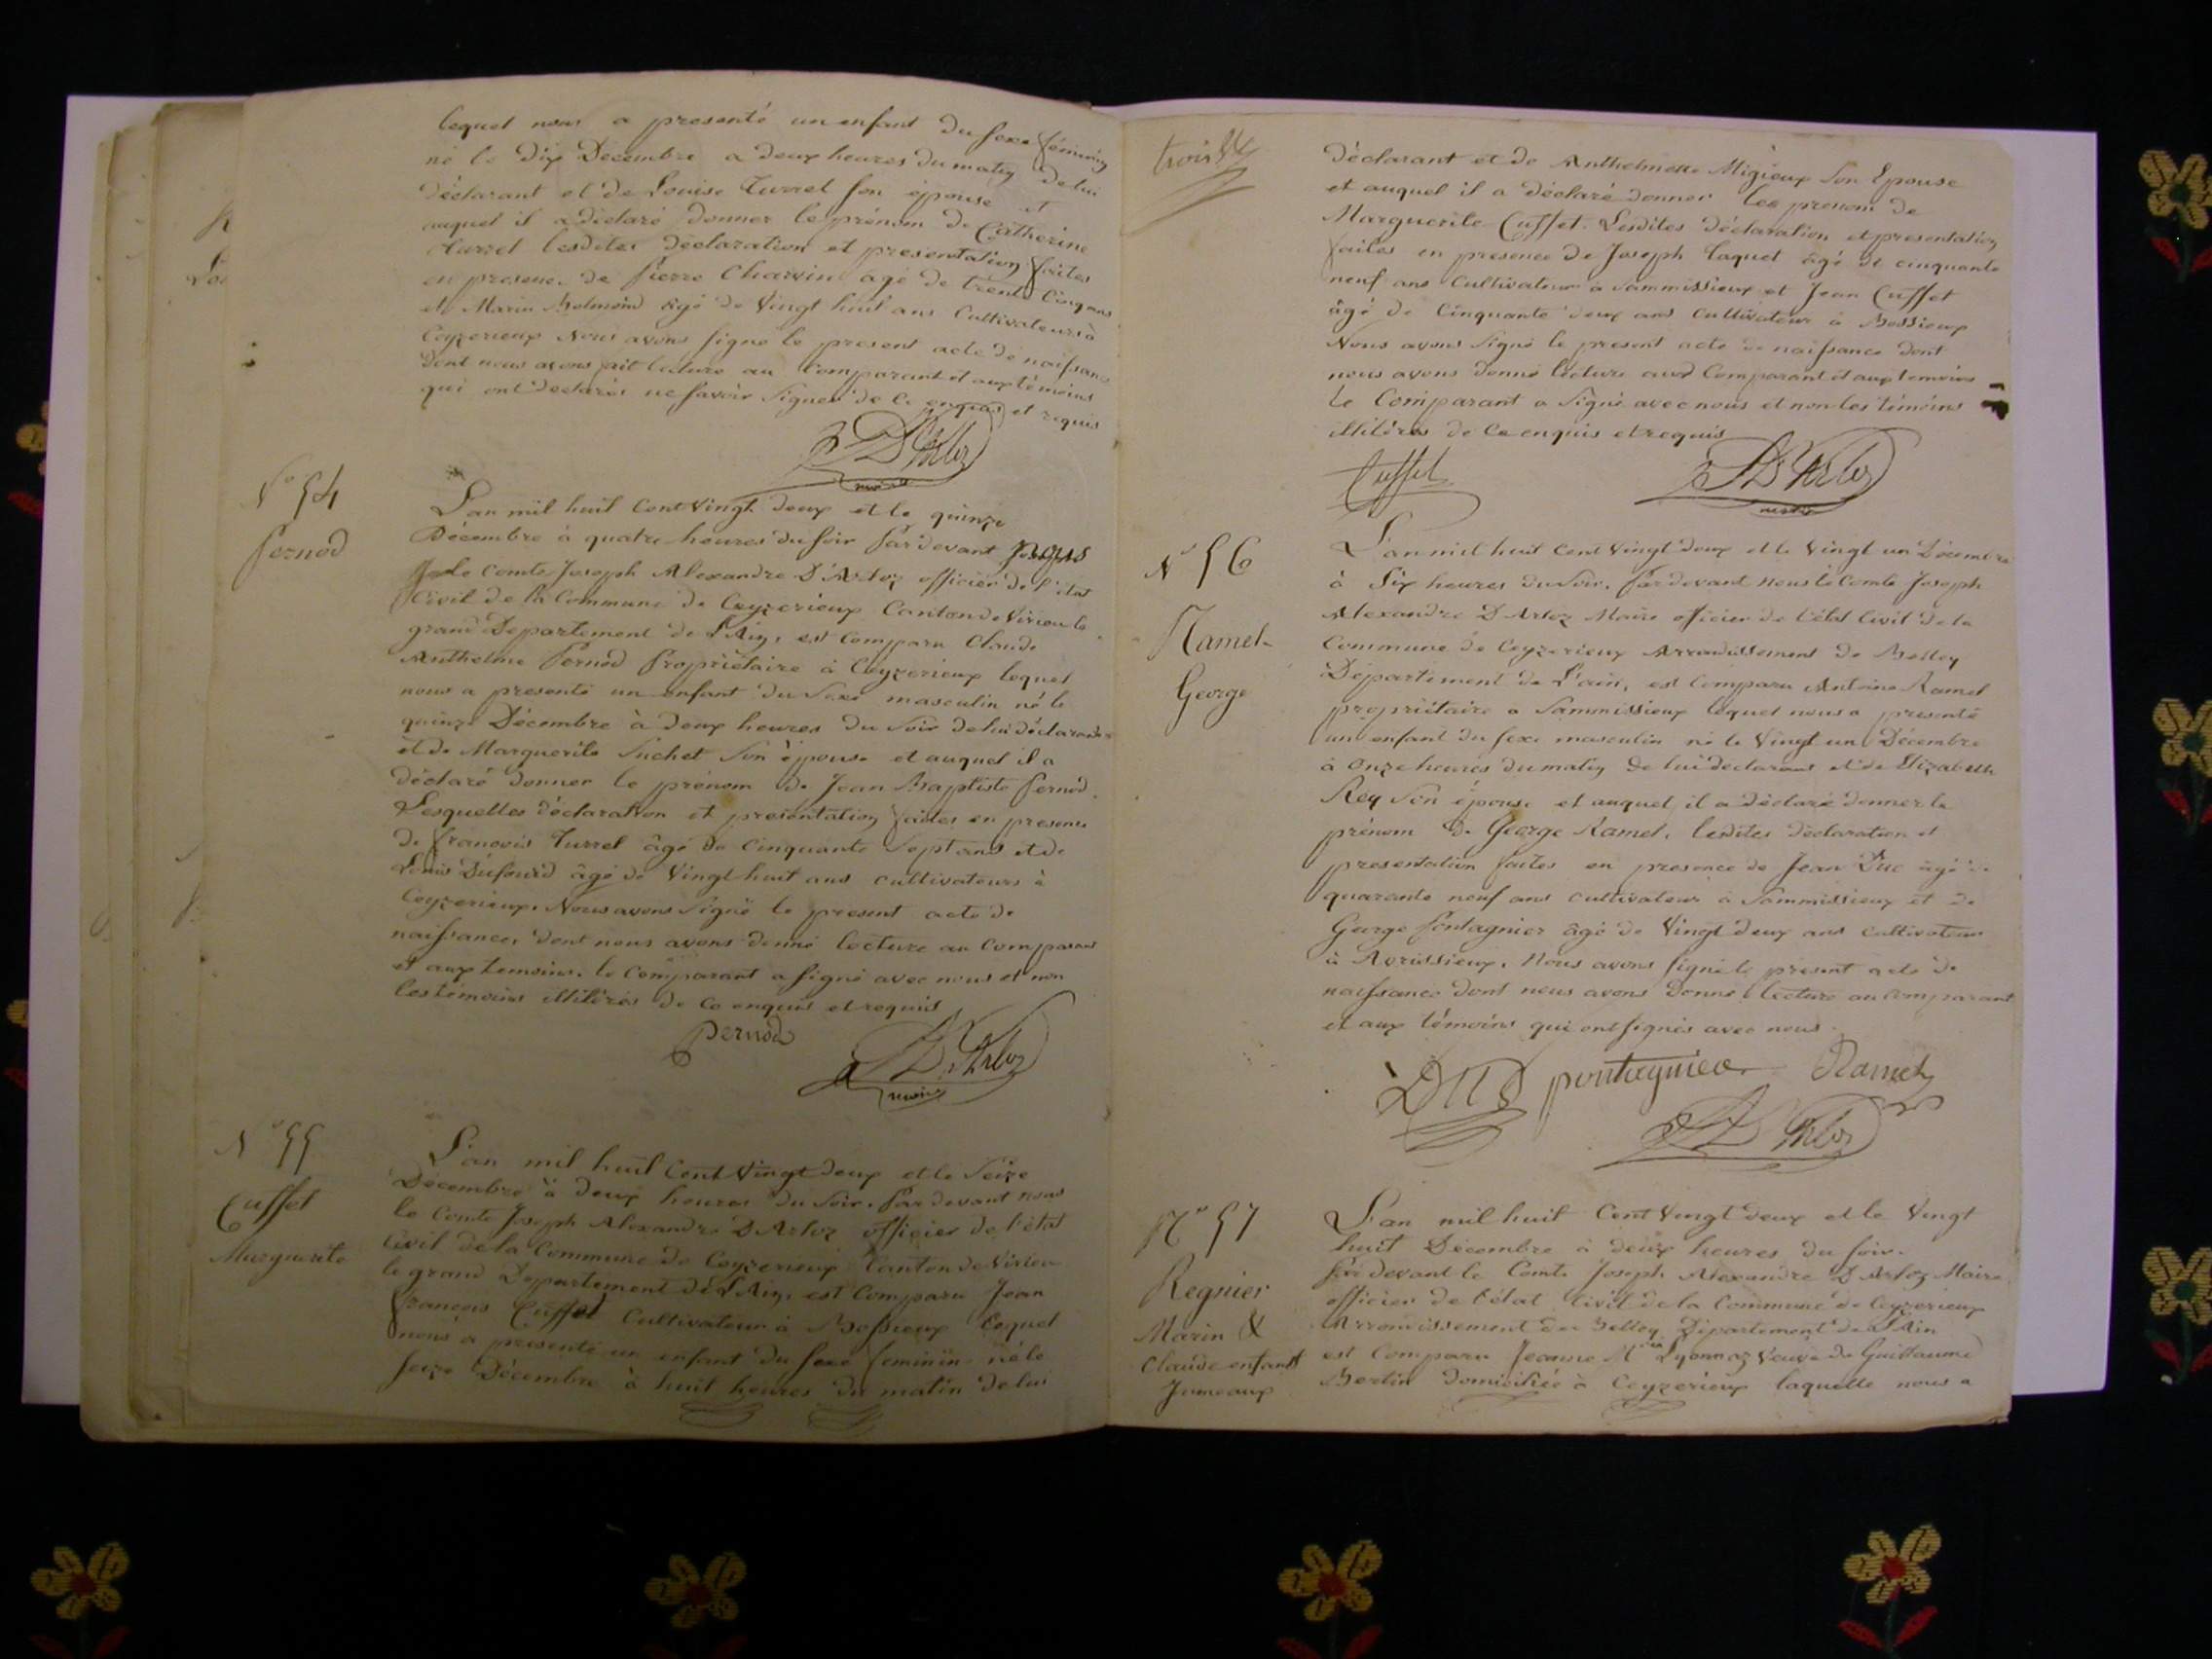 lequel nous a presenté un enfant du sexe féminin
né le dix Décembre a deux heures du matin de lui
déclarant et de Louise Turrel son épouse et
auquel il a déclaré donner le prénom de Catherine
Turrel lesdites déclaration et presentation faites
en presence de Pierre Charvin agé de trente cinq ans
et Marin Belmond âgé de vingt huit ans Cultivateurs à
Ceyzerieux Nous avons signé le present acte de naissance
dont nous avons fait lecture au Comparant et aux témoins
qui ont declarés ne savoir signer de ce enquis et requis
D'Arloz
maire
N° 54
Pernod
L'an mil huit cent vingt deux et le quinze
Décembre à quatre heures du soir Pardevant nous
le Comte Joseph Alexandre D'Arloz officier de l'état
Civil de la Commune de Ceyzerieux Canton de Virieu le
grand Département de l'Ain, est Comparu Claude
Anthelme Pernod Propriétaire à Ceyzerieux lequel
nous a presenté un enfant du sexe masculin né le
quinze Décembre à deux heures du soir de lui déclarant
et de Marguerite Suchet son épouse et auquel il a
déclaré donner le prénom de Jean Baptiste Pernod.
Lesquelles déclaration et présentation faites en presence
de françois Turrel âgé de Cinquante sept ans et de
Louis Dufourd âgé de vingt huit ans cultivateurs à
Ceyzerieux. Nous avons signé le present acte de
naissance, dont nous avons donné lecture au Comparant
et aux temoins. le Comparant a signé avec nous et non
les témoins illitérés de ce enquis et requis
pernod
D'Arloz
maire
N° 55
Cuffet
Marguerite
L'an mil huit Cent vingt deux et le seize
Décembre à deux heures du soir. Pardevant nous
le Comte Joseph Alexandre D'Arloz officier de l'état
Civil de la Commune de Ceyzerieux Canton de Virieu
le grand Département de L'Ain, est Comparu Jean
françois Cuffet Cultivateur à Bossieux lequel
nous a presenté un enfant du sexe feminin né le
seize Décembre à huit heures du matin de lui
trois
déclarant et de Anthelmette Migieux son Epouse
et auquel il a déclaré donner les prenom de
Marguerite Cuffet. Lesdites déclaration et presentation
faites en presence de Joseph Laquet âgé de cinquante
neuf ans Cultivateur à Sammissieux et Jean Cuffet
âgé de Cinquante deux ans cultivateur à Bossieux
Nous avons signé le present acte de naissance dont
nous avons donné lecture aux Comparant et aux temoins
le Comparant a signé avec nous et non les témoins
illitérés de ce enquis et requis
Cuffet
D'Arloz
maire
N° 56
Ramel
George
L'an mil huit Cent vingt deux et le vingt un Décembre
à six heures du soir. Pardevant nous le Comte Joseph
Alexandre D'Arloz Maire officier de l'état Civil de la
Commune de Ceyzerieux Arrondissement de Belley
Département de L'ain, est Comparu Antoine Ramel
propriétaire a Sammissieux lequel nous a presenté
un enfant du sexe masculin né le vingt un Décembre
à onze heures du matin de lui declarant et de Elizabeth
Rey son épouse et auquel il a déclaré donner le
prénom de George Ramel, lesdites déclaration et
presentation faites en presence de Jean Duc âgé de
quarante neuf ans cultivateur à Sammissieux et de
George Pontagnier âgé de vingt deux ans cultivateur
à Avrissieux. Nous avons signé le présent acte de
naissance dont nous avons donné lecture au comparant
et aux témoins qui ont signés avec nous.
DUC pontagnier Ramel
D'Arloz
N° 57
Regnier
Marin &
Claude enfant
Jumeaux
L'an mil huit Cent vingt deux et le vingt
huit Décembre à deux heures du soir.
Pardevant le Comte Joseph Alexandre D'Arloz Maire
officier de l'état Civil de la Commune de Ceyzerieux
Arrondissement de Belley Département de L'Ain
est Comparu Jeanne M Lyonnaz veuve de Guillaume
Bertin domiciliée à Ceyzerieux laquelle nous a